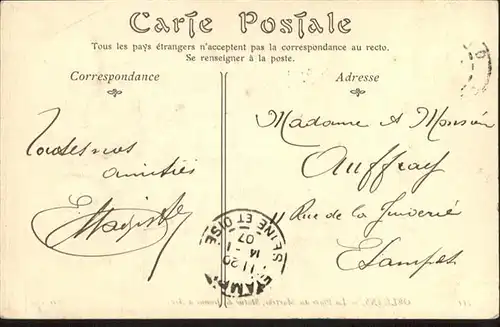 Carte Postale
Tous les pays étrangers n'acceptent pas la correspondance au recto.
Se renseigner à la poste.
Correspondance
Adresse
Toutes nos
amitiés
Madame et Monsieur
Auffray
11 Rue de la Juiverie
Etampes
ETAMPES
SEINE ET OISE
11 20
14 -1
07